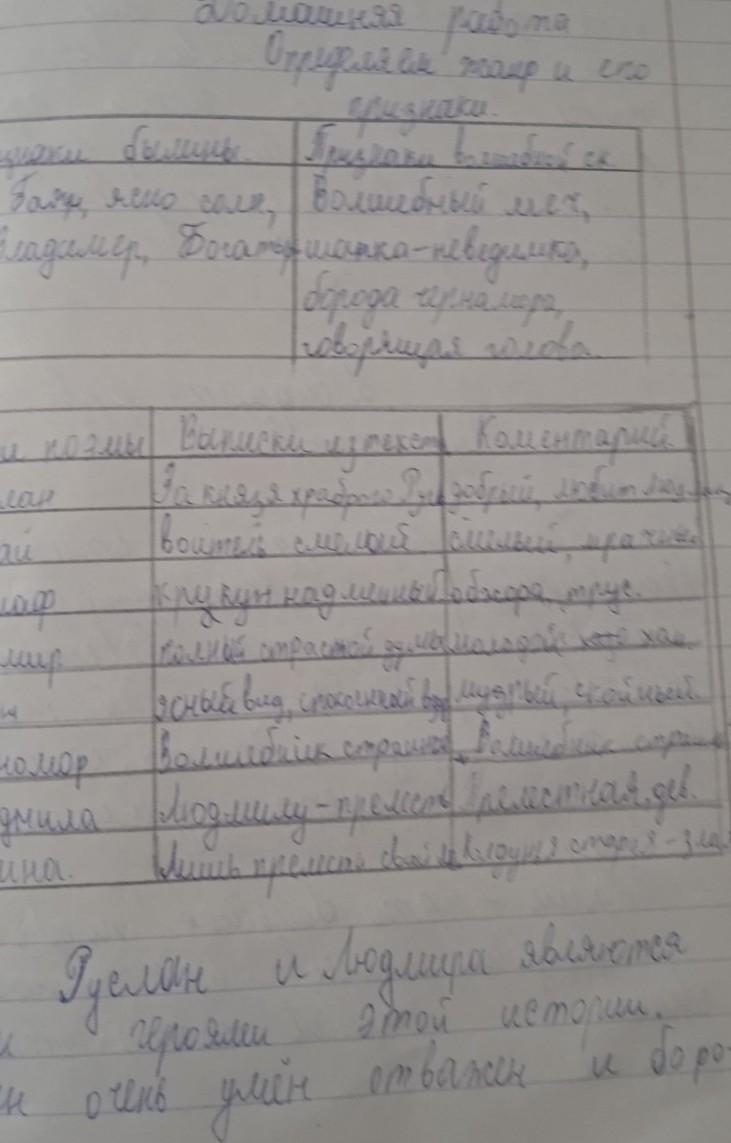 Домашняя работа
Определяем жанр и его
признаки.
былины. Признаки волшебной ск.
Баян, ясно солн, Волшебный меч,
Владимер, Богатыр шапка-неведимка,
борода чернамора,
говорящая голова.
и поэмы Выписки из текст Коментарий
лан За князя храброго добрый,
ай воитель смелый смелый,
лаф крикун надменный обжора, трус.
мир полный страстной думы молодой хан.
н ясный вид, спокойный мудрый,
номор Волшебник страшной Волшебник
дмила Людмилу-прелест Прелестная дев.
ина. Лишь прелести Колдунья старая-зла
Руслан и Людмира являются
и героями этой истории.
н очень умён отважен и боро